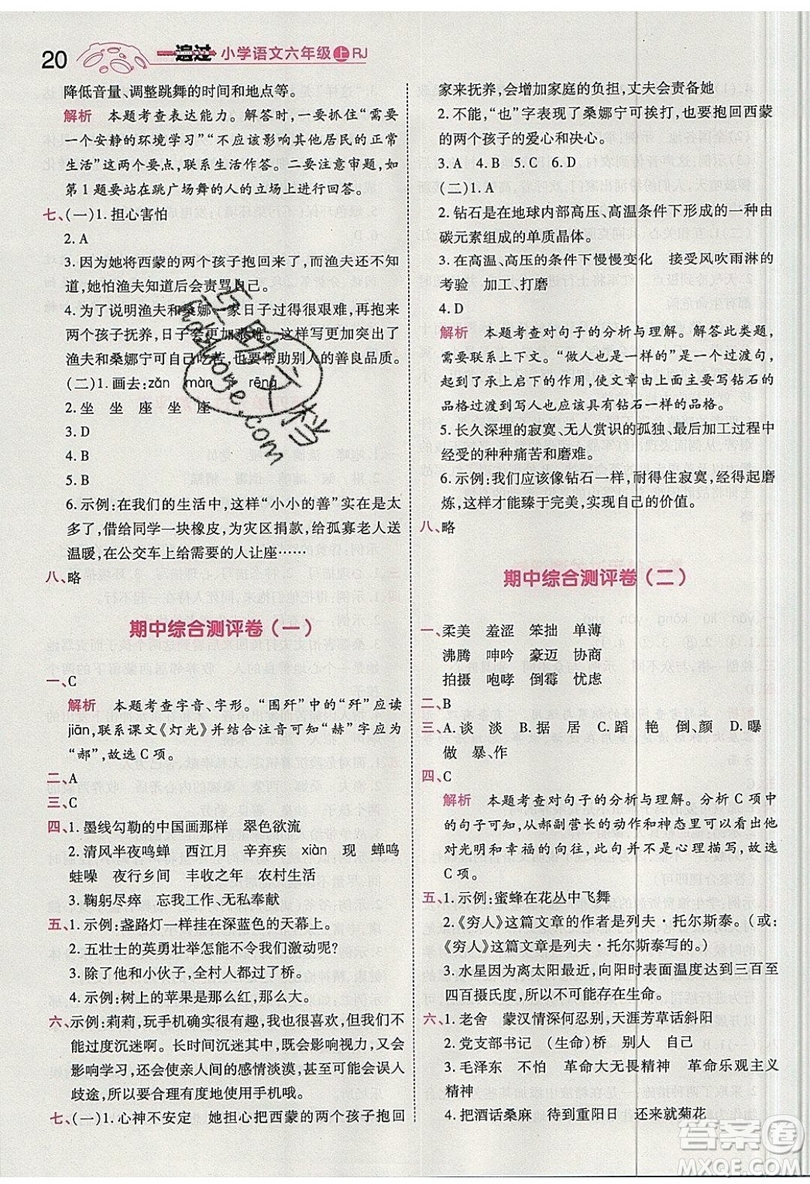 20
一遍过 小学语文六年级上RJ
降低音量、调整跳舞的时间和地点等。
解析 本题考查表达能力。解答时要抓住“需要
一个安静的环境学习”“不应该影响其他居民的正常
生活”这两个要点,联系生活作答。二要注意审题,如
第1题要站在跳广场舞的人的立场上进行回答。
七、(一)1.担心害怕
2.A
3.因为她将西蒙的两个孩子抱回来渔夫还不知
道,她怕渔夫知道后会责骂自己。
4.为了说明渔夫和桑娜一家日子过得很艰难,再抱来
两个孩子抚养,日子会更加艰难。同时也写出了
渔夫和桑娜宁可自己吃苦,也要帮助别人的善良品质。
(二)1.画去:zān màn rēng
2.坐 坐 座 坐 座
3.D
4.B
5.D
6.示例:在我们的生活中,这样“小小的善”实在是太
多了。借同学一块橡皮,为灾区捐款,给孤寡老人送
温暖,在公交车上给需要的人让座……
八、略
期中综合测评卷(一)
一、C
解析 本题考查字音、字形。“围歼”中的“歼”应读
jiān,联系课文《灯光》并结合注音可知“赫”字应为
“郝”,故选C项。
二、A
三、C
四、1.墨线勾勒的中国画那样 翠色欲流
2.清风半夜鸣蝉 西江月 辛弃疾 xiàn 现 蝉鸣
蛙噪 夏夜 丰收在望 年农 农村生活
3.鞠躬尽瘁 忘我工作、无私奉献
五、1.示例:盏盏路灯一样挂在深蓝色的天幕上。
2.五壮士的英勇壮举怎能不令我们感动呢?
3.除了他和小伙子,全村人都过了桥。
4.示例:树上的苹果是那么红,那么红。
六、示例:莉莉,玩手机游戏虽然很开心,但是我们不能
过度沉迷啊。长时间沉迷于手机游戏,既会影响视
力,又会影响学习,甚至还可能会让人误入
歧途,所以要合理有度地玩游戏哦!
七、(一)1.心神不安定 她担心把西蒙的两个孩子抱回
家来抚养,会增加家庭的负担,丈夫会责备她
2.不能,“也”字表现了桑娜宁可挨打,也要抱回西蒙
的两个孩子的爱心和决心。
3.A 4.B 5.C 6.D
(二)1.A
2.钻石是在地球内部高压、高温条件下形成的一种由
碳元素组成的单质晶体。
3.在高温、高压的条件下慢慢变化 接受风吹雨淋的
考验 加工、打磨
4.D
解析 本题考查对句子的分析与理解。解答此类题,
需要联系上下文。“做人也是一样的”是一个过渡句,
起到了承上启下的作用,所以后面应该是由钻石的
品格过渡到写人也应该具有像钻石一样的品格。
5.长久深埋的寂寞、无人赏识的孤独、最后加工过程中
经受的种种痛苦和磨难。
6.示例:我们应该像钻石一样,耐得住寂寞,经得起磨
炼,这样才能臻于完美,实现自己的价值。
八、略
期中综合测评卷(二)
一、柔美 羞涩 笨拙 单薄
沸腾 呻吟 豪迈 协商
拍摄 咆哮 倒霉 忧虑
二、B
三、A.谈 淡 B.据 居 C.蹈 艳 倒、颜 D.曝
做 暴、作
四、C
解析 本题考查对句子的分析与理解。分析C项中
的句子可知,从郝副营长的动作和神态里可以看出他
对光明和幸福的向往,这句话并没有心理描写,故选
C项。
五、1.示例:蜜蜂在花丛中飞舞
2.《穷人》这篇文章的作者是列夫·托尔斯泰。(或:
《穷人》这篇文章是列夫·托尔斯泰写的。)
3.水星因为离太阳最近,向阳时表面温度达到三百至
四百摄氏度,所以不可能存在生命。
六、1.老舍 蒙汉情深何忍别,天涯芳草话斜阳
2.党支部书记 (亲)人 别人 自己
3.毛泽东 不怕 革命大无畏精神 革命乐观主义
精神
4.把酒话桑麻 待到重阳日 还来就菊花
答案圈
MXQE.COM